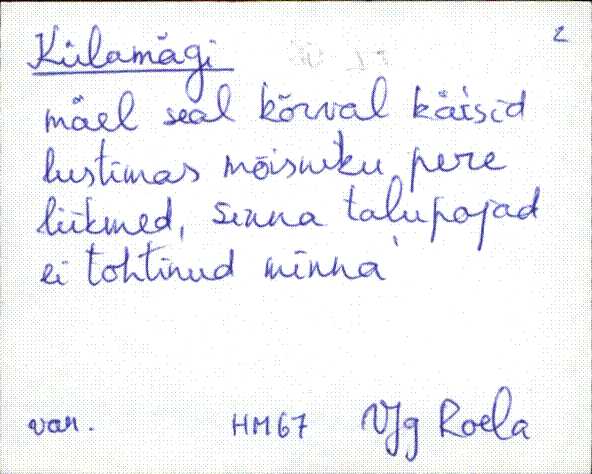 Külamägi 2
mäel seal kõrval käisid
lustimas mõisniku pere
liikmed, sinna talupojad
ei tohtinud minna
var. HM67 VJg Roela